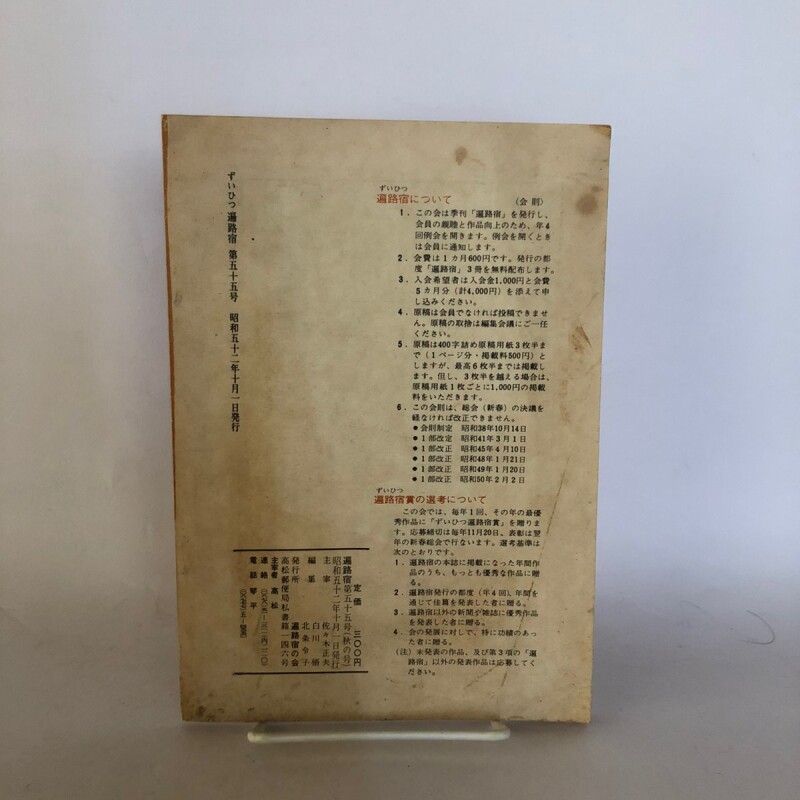 ずいひつ
遍路宿について
(会則)
1．この会は季刊「遍路宿」を発行し、
会員の親睦と作品向上のため、年4
回例会を開きます。例会を開くとき
は会員に通知します。
2．会費は1カ月600円です。発行の都
度「遍路宿」3冊を無料配布します。
3．入会希望者は入会金1,000円と会費
5カ月分(計4,000円)を添えて申
し込みください。
4．原稿は会員でなければ投稿できませ
ん。原稿の取捨は編集会議にご一任
ください。
5．原稿は400字詰め原稿用紙3枚半ま
で(1ページ分・掲載料500円)と
しますが、最高6枚半までは掲載し
ます。但し、3枚半を越える場合は、
原稿用紙1枚ごとに1,000円の掲載
料をいただきます。
6．この会則は、総会(新春)の決議を
経なければ改正できません。
●会則制定 昭和38年10月14日
●1部改定 昭和41年3月1日
●1部改正 昭和45年4月10日
●1部改正 昭和48年1月21日
●1部改正 昭和49年1月20日
●1部改正 昭和50年2月2日
ずいひつ
遍路宿賞の選考について
この会では、毎年1回、その年の最優
秀作品に「ずいひつ遍路宿賞」を贈りま
す。応募締切は毎年11月20日、表彰は翌
年の新春総会で行ないます。選考基準は
次のとおりです。
1．遍路宿の本誌に掲載になった年間作
品のうち、もっとも優秀な作品に贈
る。
2．遍路宿発行の都度(年4回)、年間を
通じて佳篇を発表した者に贈る。
3．遍路宿以外の新聞や雑誌に優秀作品
を発表した者に贈る。
4．会の発展に対して、特に功績のあっ
た者に贈る。
(注)未発表の作品、及び第3項の「遍
路宿」以外の発表作品は応募してく
ださい。
定価 三〇〇円
遍路宿第五十五号(秋の号)
昭和五十二年十月一日発行
主宰 佐々木正夫
編集 白川
北条令子
発行所 遍路宿の会
高松郵便局私書箱一四六号
主宰者 高松
連絡
電話 琴平
ずいひつ 遍路宿 第五十五号 昭和五十二年十月一日発行